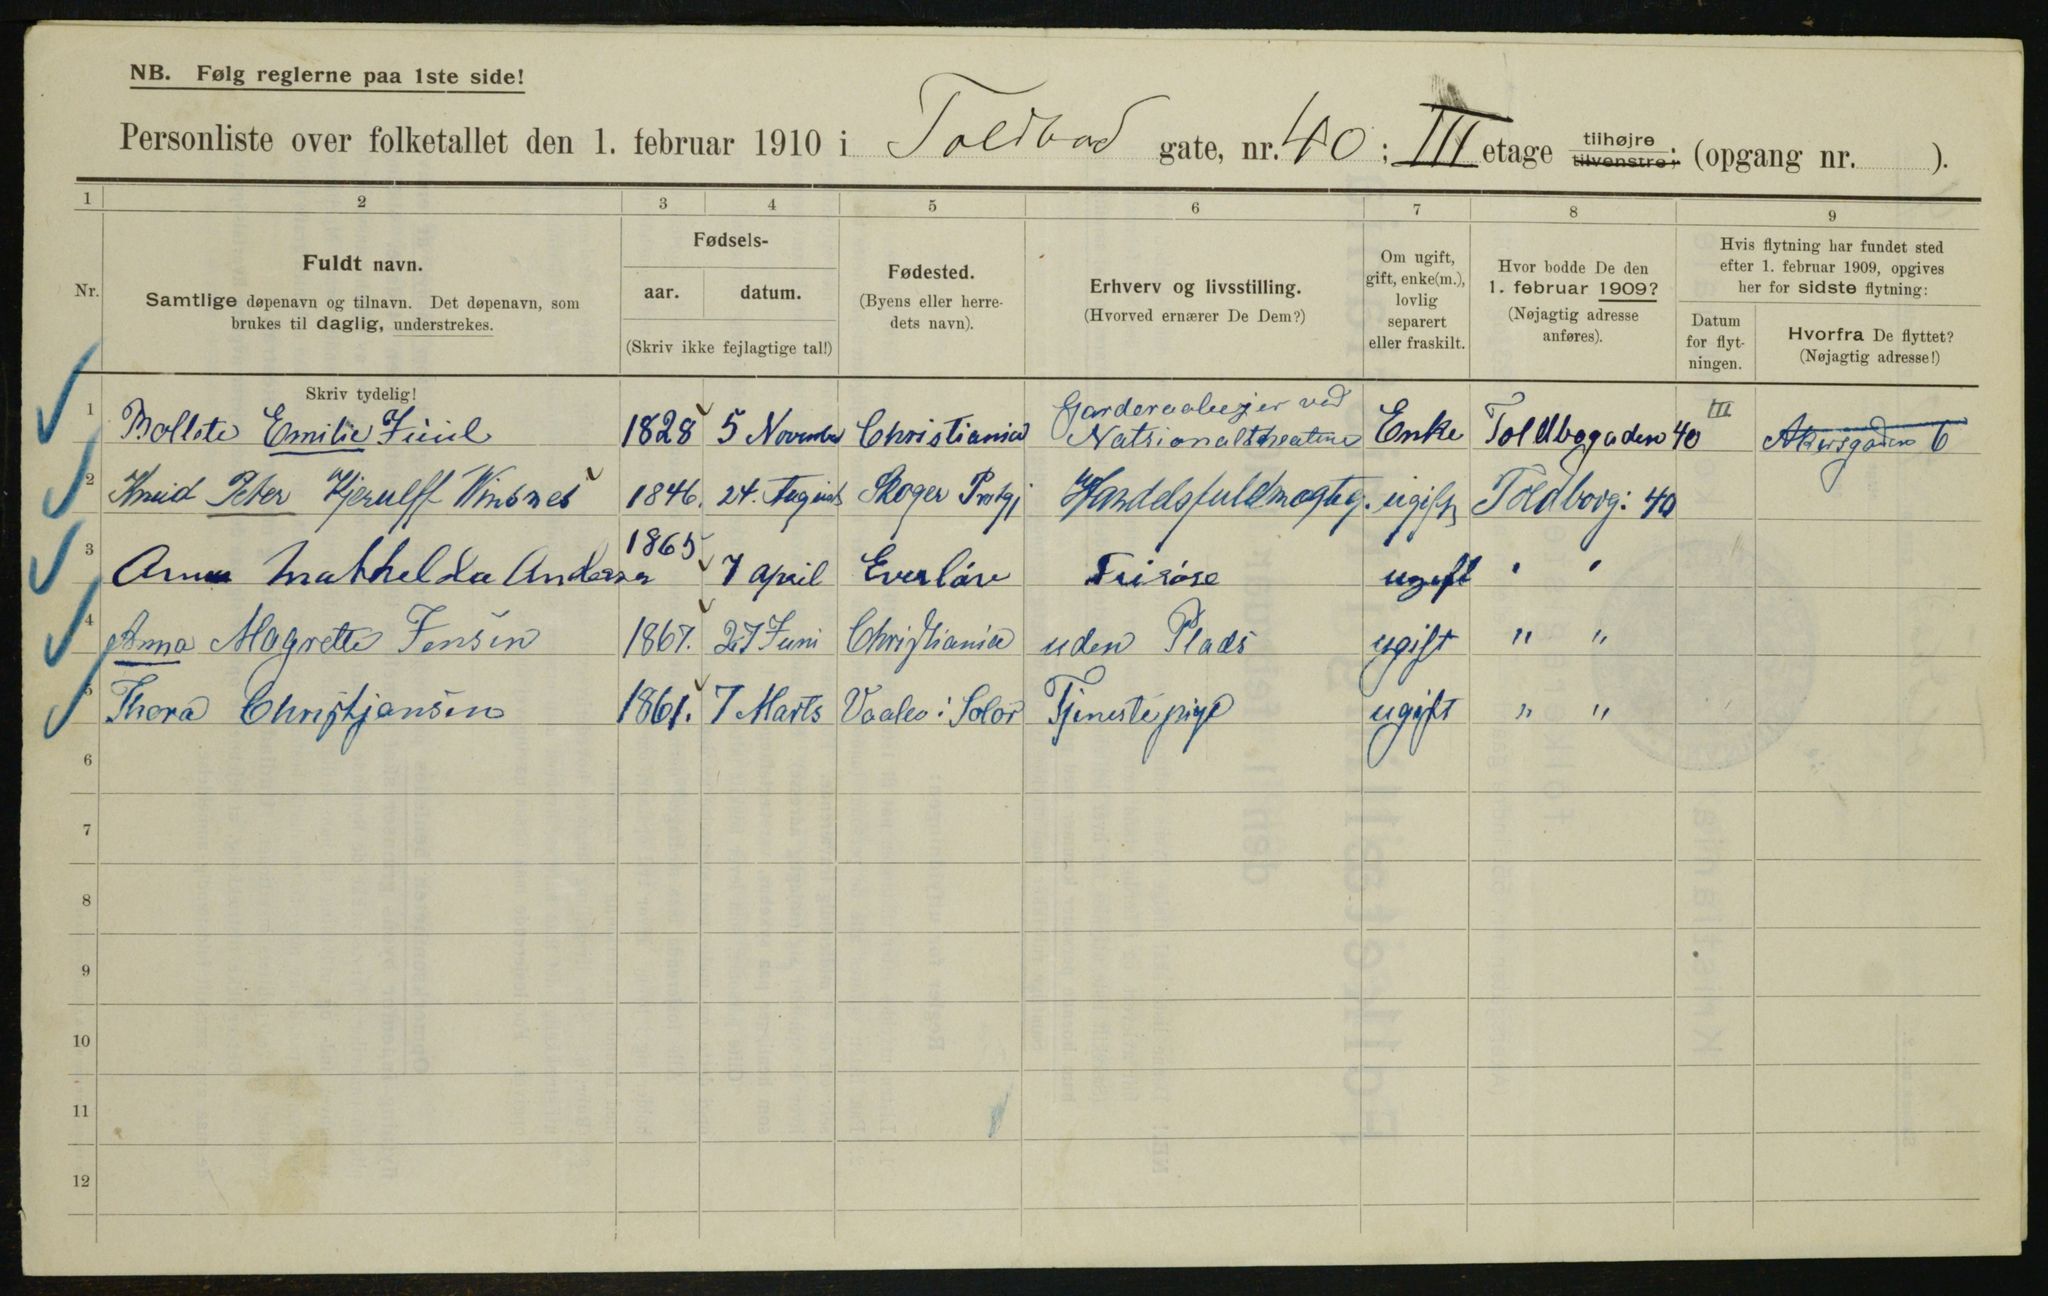 NB. Følg reglerne paa 1ste side!
Personliste over folketallet den 1. februar 1910 i Toldbod gate, nr. 40 ; III etage tilhøjre tilvenstre; (opgang nr. ).
1 2 3 4 5 6 7 8 9
Nr.
Fuldt navn.
Samtlige døpenavn og tilnavn. Det døpenavn, som
brukes til daglig, understrekes.
Fødsels-
aar. datum.
(Skriv ikke fejlagtige tal!)
Fødested.
(Byens eller herre-
dets navn).
Erhverv og livsstilling.
(Hvorved ernærer De Dem?)
Om ugift,
gift, enke(m.),
lovlig
separert
eller fraskilt.
Hvor bodde De den
1. februar 1909?
(Nøjagtig adresse
anføres).
Hvis flytning har fundet sted
efter 1. februar 1909, opgives
her for sidste flytning:
Datum
for flyt-
ningen.
Hvorfra De flyttet?
(Nøjagtig adresse!)
Skriv tydelig!
1 Bollete Emilie Juul 1828 5 November Christiania Garderobejer ved Nationaltheatret Enke Toldbogaden 40 III Akersgaden 6
2 Knud Peter Kjerulff Winsnes 1846. 24. August Skoger Prstgj Handelsfuldmægtig. ugift Toldbodg: 40
3 Anna Mathelda Andersen 1865 7 april Ever Frisöse ugift " "
4 Anna Magrette Jensen 1867. 27 Juni Christiania uden Plads ugift " "
5 Thora Christjansen 1861. 7 Marts Vaaler i Solør Tjenestepige ugift " "
6
7
8
9
10
11
12